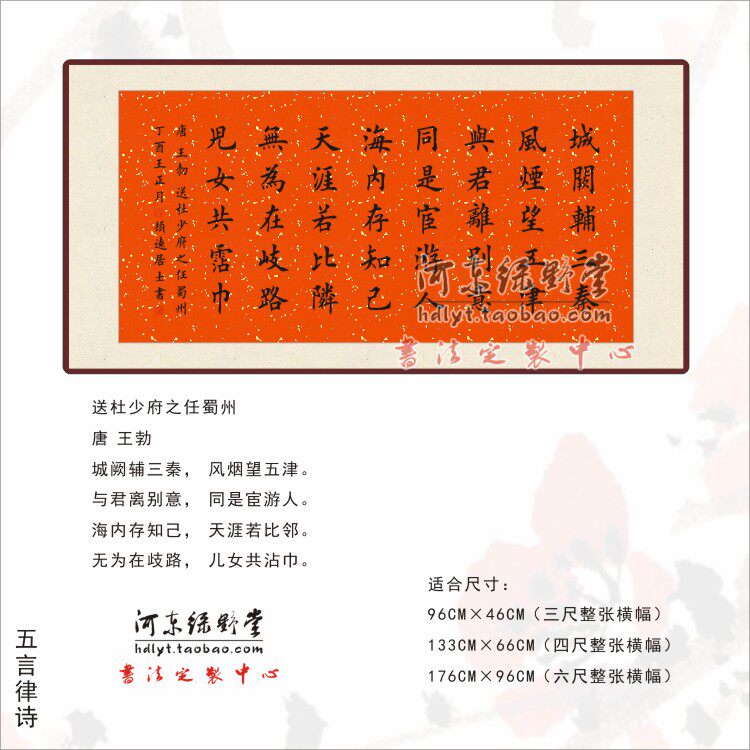 城闕輔三秦
風煙望五津
與君離別意
同是宦游人
海內存知己
天涯若比隣
無為在歧路
児女共霑巾
唐 王勃 送杜少府之任蜀州
丁酉王正月 頛遠居士書
河东绿野堂
hdlyt.taobao.com
書法定製中心
送杜少府之任蜀州
唐 王勃
城阙辅三秦， 风烟望五津。
与君离别意， 同是宦游人。
海内存知己， 天涯若比邻。
无为在歧路， 儿女共沾巾。
适合尺寸：
96CM×46CM（三尺整张横幅）
133CM×66CM（四尺整张横幅）
176CM×96CM（六尺整张横幅）
河东绿野堂
hdlyt.taobao.com
書法定製中心
五言律诗